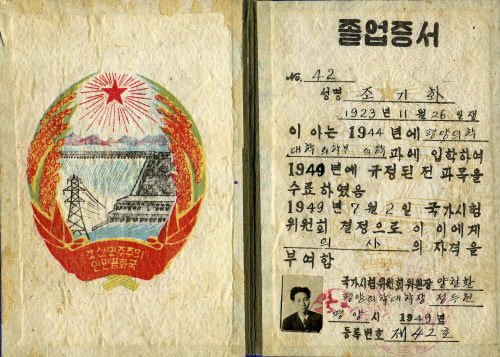 조선민주주의
인민공화국
졸업증서
No. 42
성명 조기화
1923년 11월 26일생
이 아는 1944년에 평양의학
대학 의학부 의학과에 입학하여
1949년에 규정된 전 과목을
수료하였음
1949년 7월 2일 국가시험
위원회 결정으로 이 이에게
의사의 자격을
부여함
국가시험위원회 위원장 양철환
평양의학대학장 정두현
평양시 1949년
등록번호 제42호